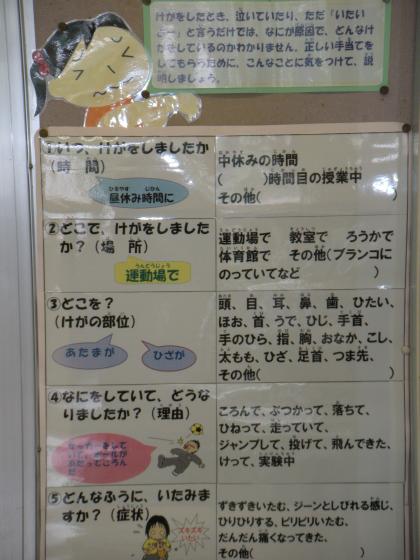 けがをしたとき、泣いていたり、ただ「いたい
よー」と言うだけでは、なにが原因で、どんなけ
がをしているのかわかりません。正しい手当てを
してもらうために、こんなことに気をつけて、説
明しましょう。
①いつ、けがをしましたか
(時　間)
昼休み時間に
中休みの時間
(　　　)時間目の授業中
その他(　　　　　　)
②どこで、けがをしました
か？(場　所)
運動場で
運動場で　教室で　ろうかで
体育館で　その他(ブランコに
のっていてなど　　　　　)
③どこを？
(けがの部位)
あたまが
ひざが
頭、目、耳、鼻、歯、ひたい、
ほお、首、うで、ひじ、手首、
手のひら、指、胸、おなか、こし、
太もも、ひざ、足首、つま先、
その他(　　　　　　　　)
④なにをしていて、どうな
りましたか？(理由)
サッカーをして
いて、ボールが
あたってころん
だ
ころんで、ぶつかって、落ちて、
ひねって、走っていて、
ジャンプして、投げて、飛んできた、
けって、実験中
⑤どんなふうに、いたみま
すか？(症状)
ズキズキ
いたい
ずきずきいたむ、ジーンとしびれる感じ、
ひりひりする、ピリピリいたむ、
だんだん痛くなってきた、
その他(　　　　　　　　)